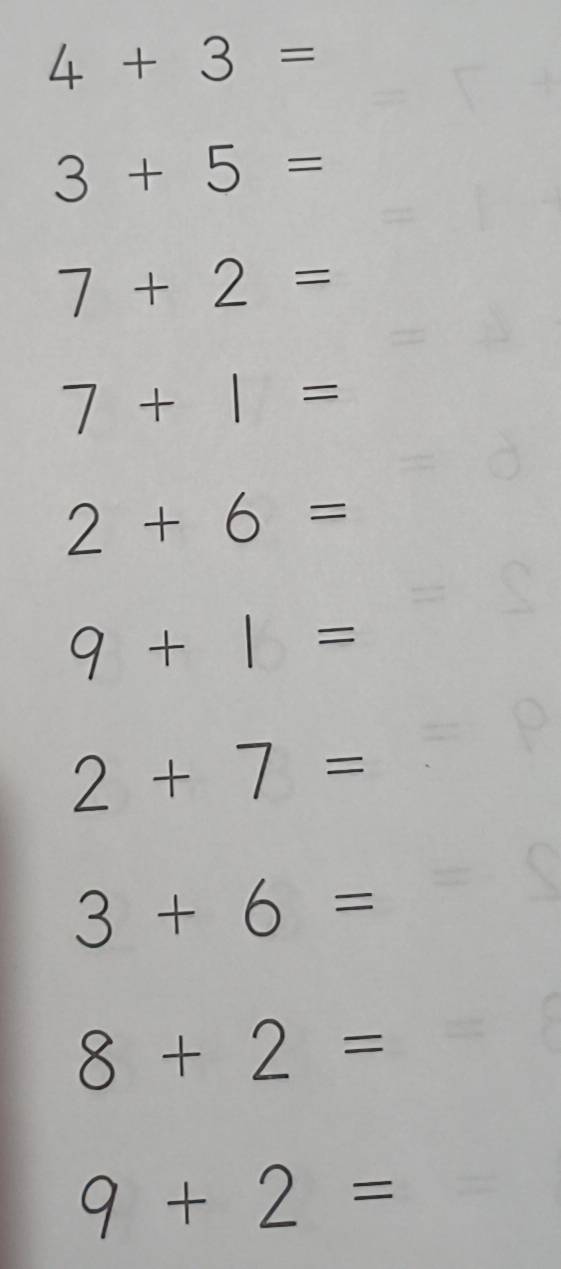 4 + 3 =
3 + 5 =
7 + 2 =
7 + 1 =
2 + 6 =
9 + 1 =
2 + 7 =
3 + 6 =
8 + 2 =
9 + 2 =